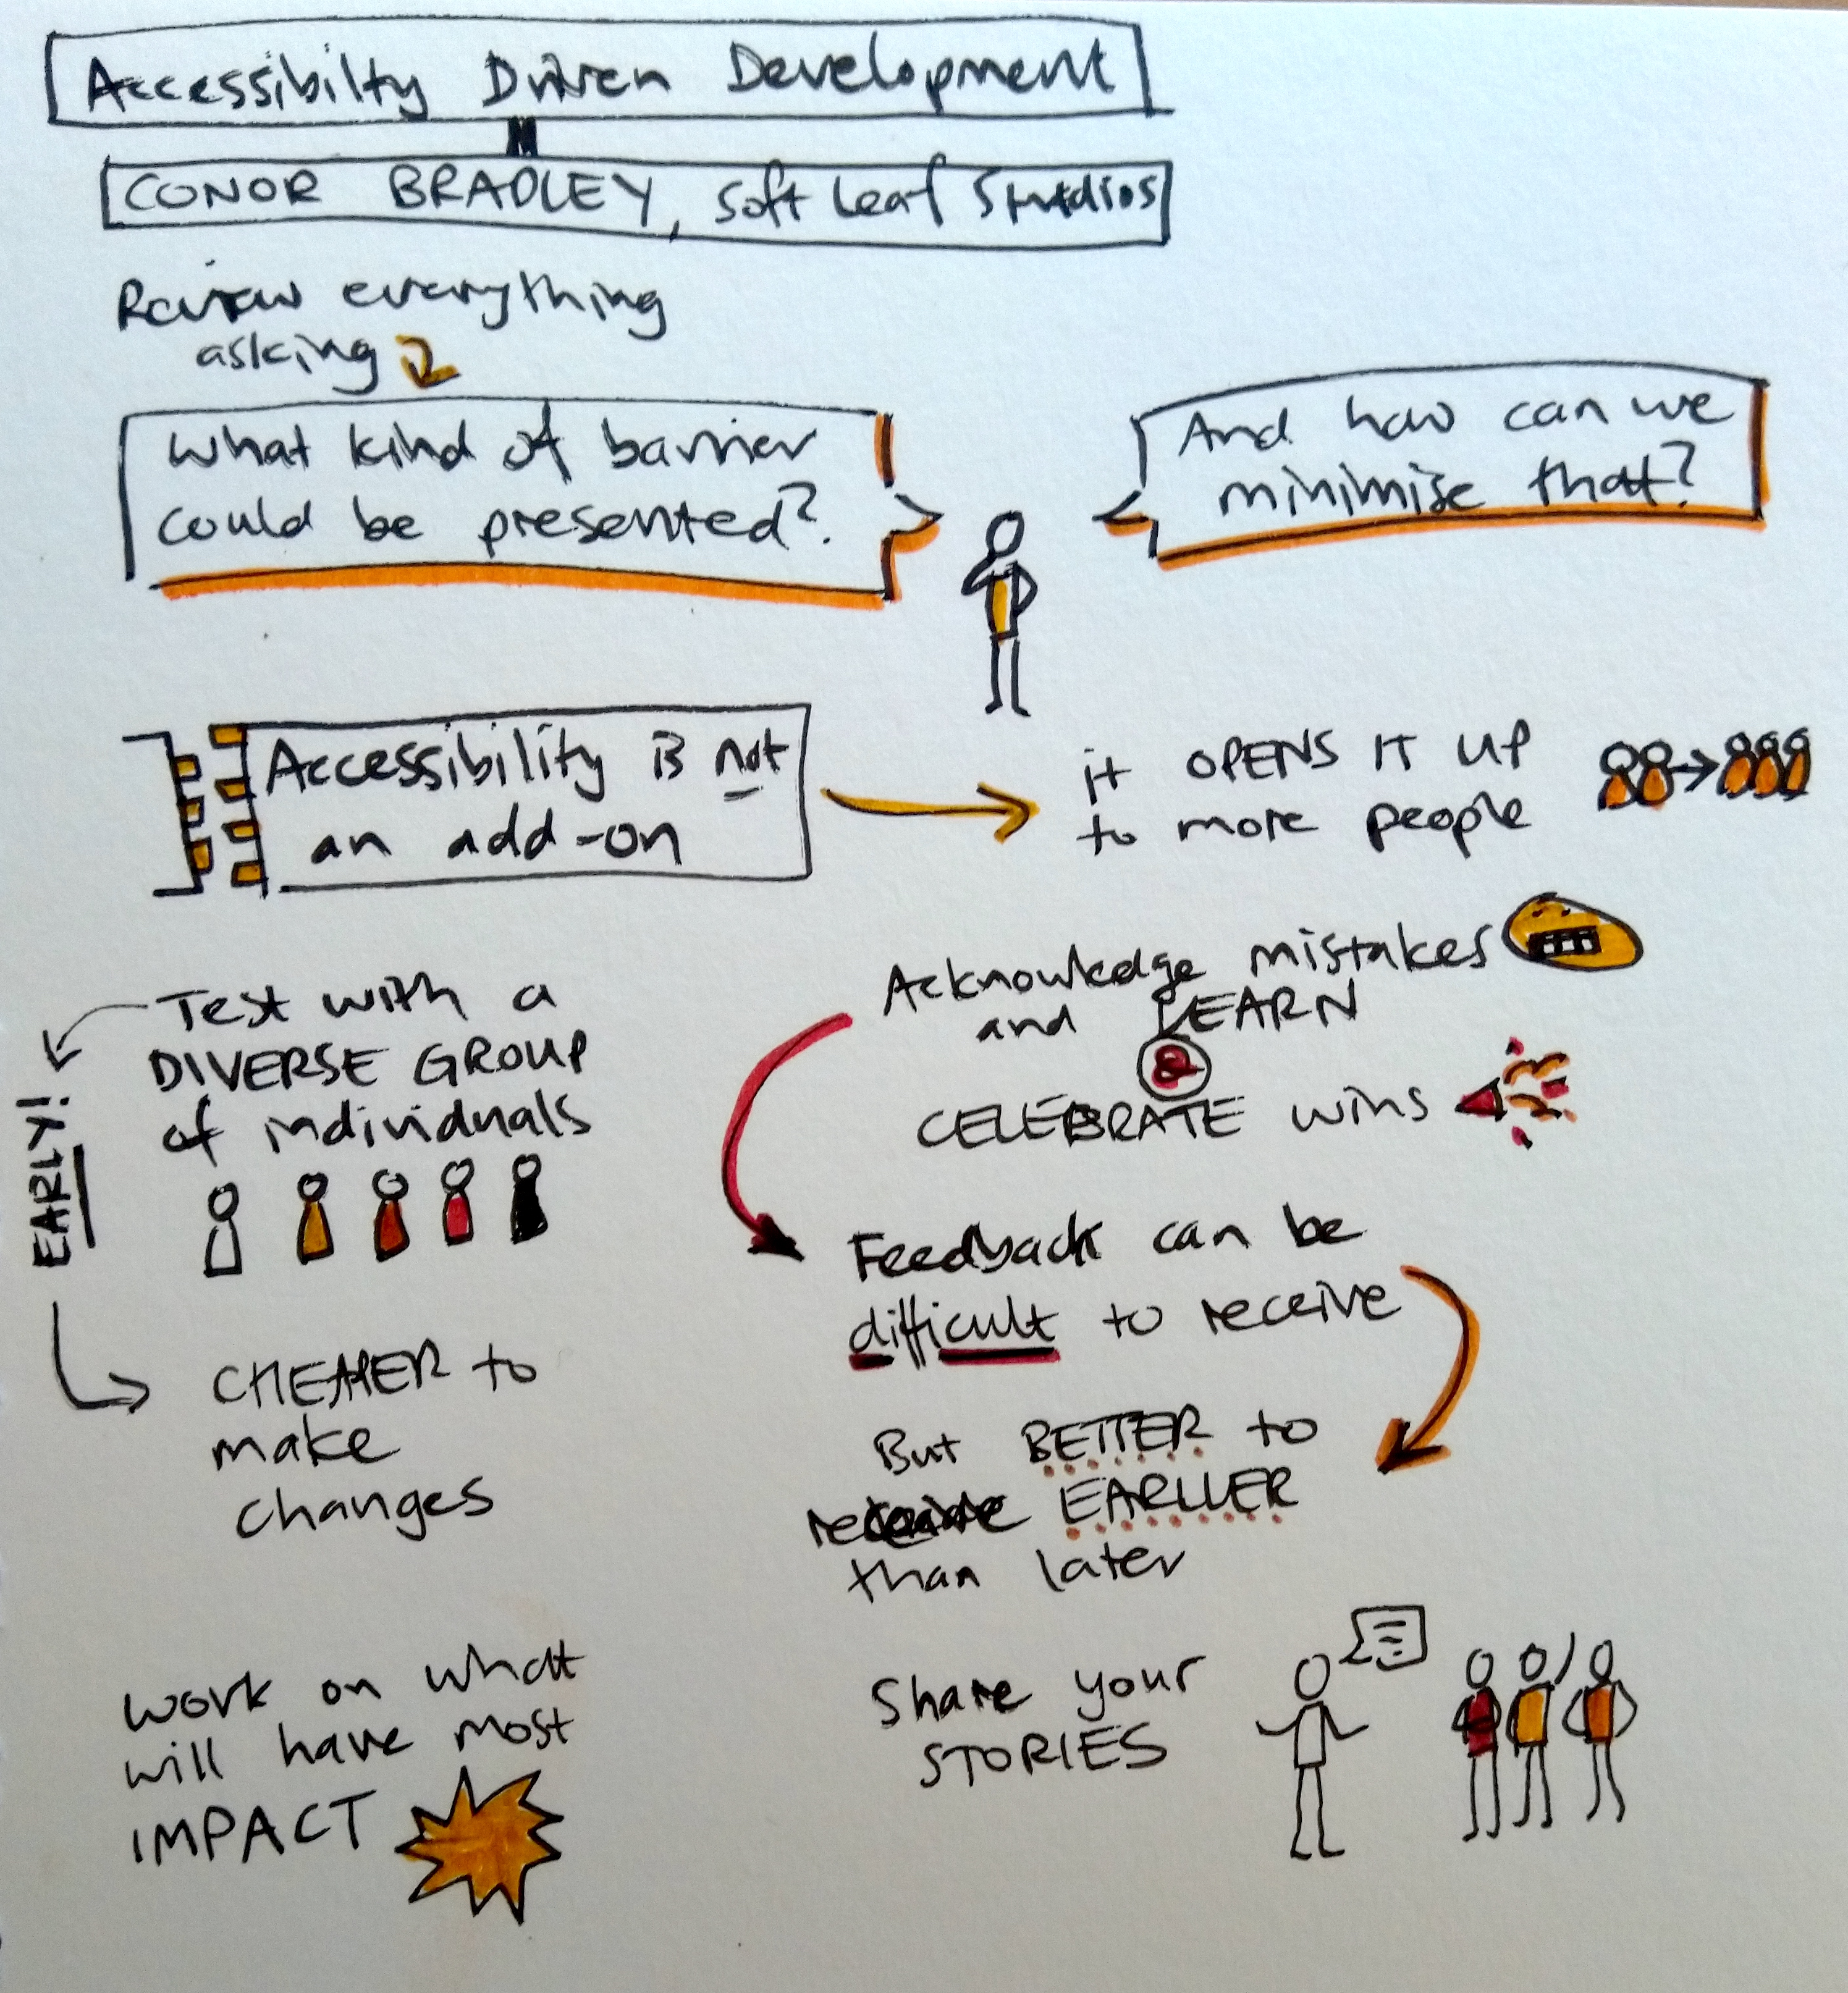 Accessibilty Driven Development
CONOR BRADLEY, Soft Leaf Studios
Review everything
asking
What kind of barrier
could be presented?
And how can we
minimise that?
Accessibility is not
an add-on
it OPENS IT UP
to more people
Test with a
DIVERSE GROUP
of individuals
EARLY!
CHEAPER to
make
changes
Work on what
will have most
IMPACT
Acknowledge mistakes
and LEARN
&
CELEBRATE wins
Feedback can be
difficult to receive
But BETTER to
receive EARLIER
than later
Share your
STORIES